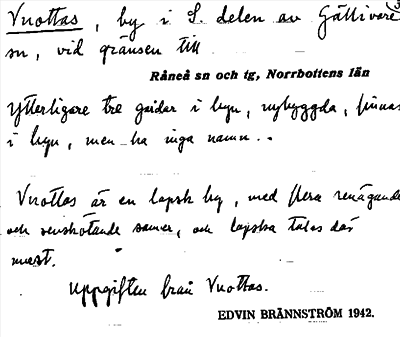 Vuottas, by i S. delen av Gällivare
sn, vid gränsen till
Råneå sn och tg, Norrbottens län
Ytterligare tre gårdar i byn, nybyggda, finnas
i byn, men ha inga namn..
Vuottas är en lapsk by, med flera renägande
och renskötande samer, och lapska talas där
mest.
Uppgiften från Vuottas.
EDVIN BRÄNNSTRÖM 1942.